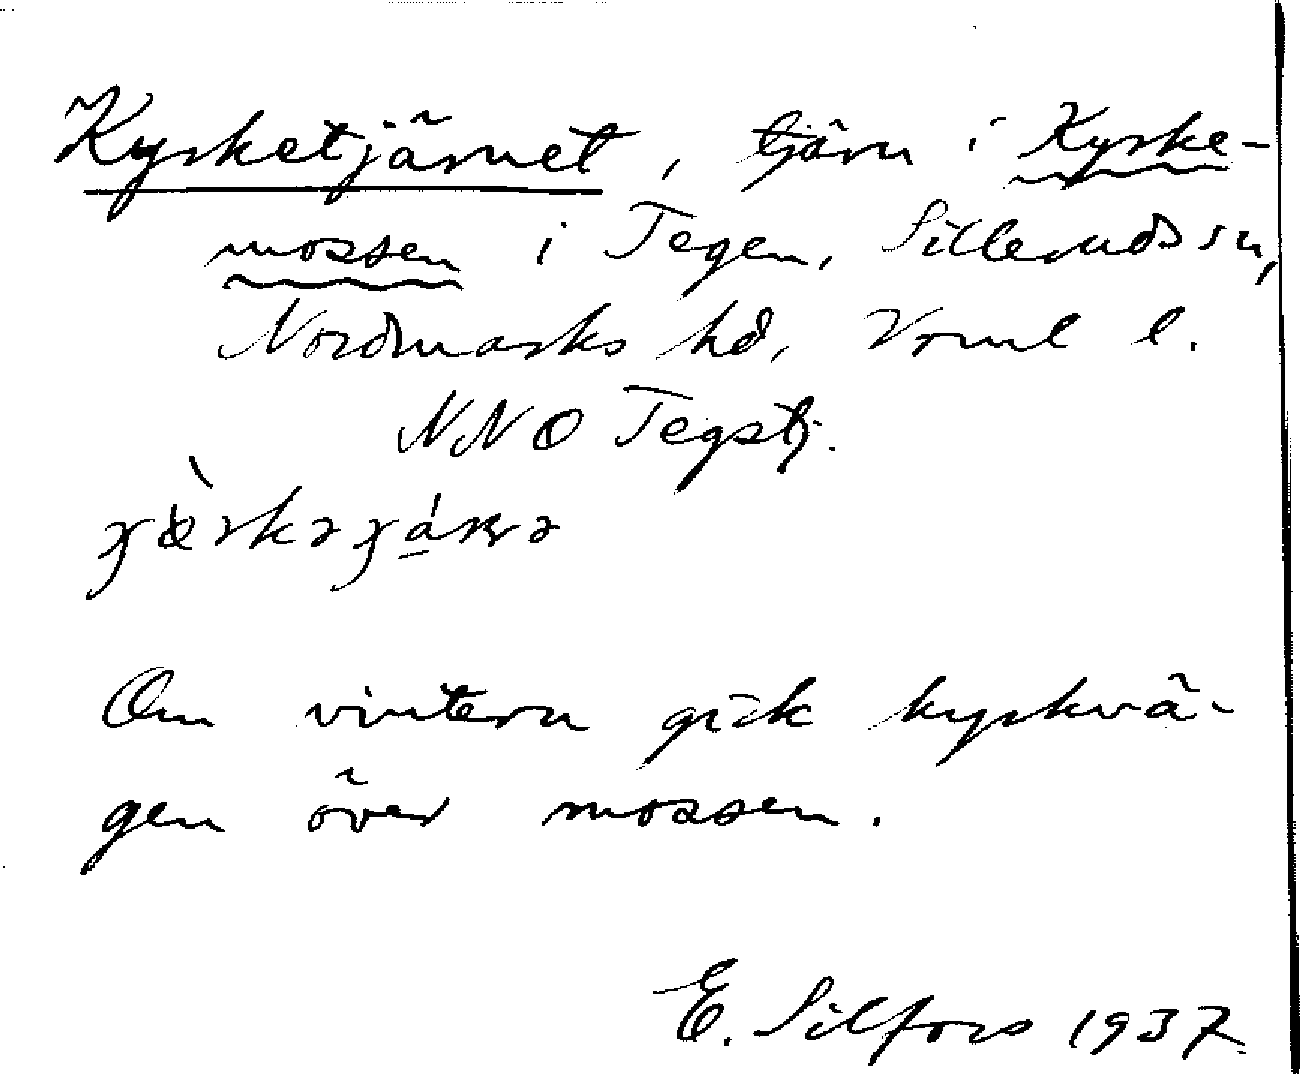 Kyrketjärnet, tjärn i Kyrke-
mossen i Tegen, Silleruds sn,
Nordmarks hd, Vrml l.
NNO Tegstj.
Om vintern gick kyrkvä-
gen över mossen.
E. Silfors 1937